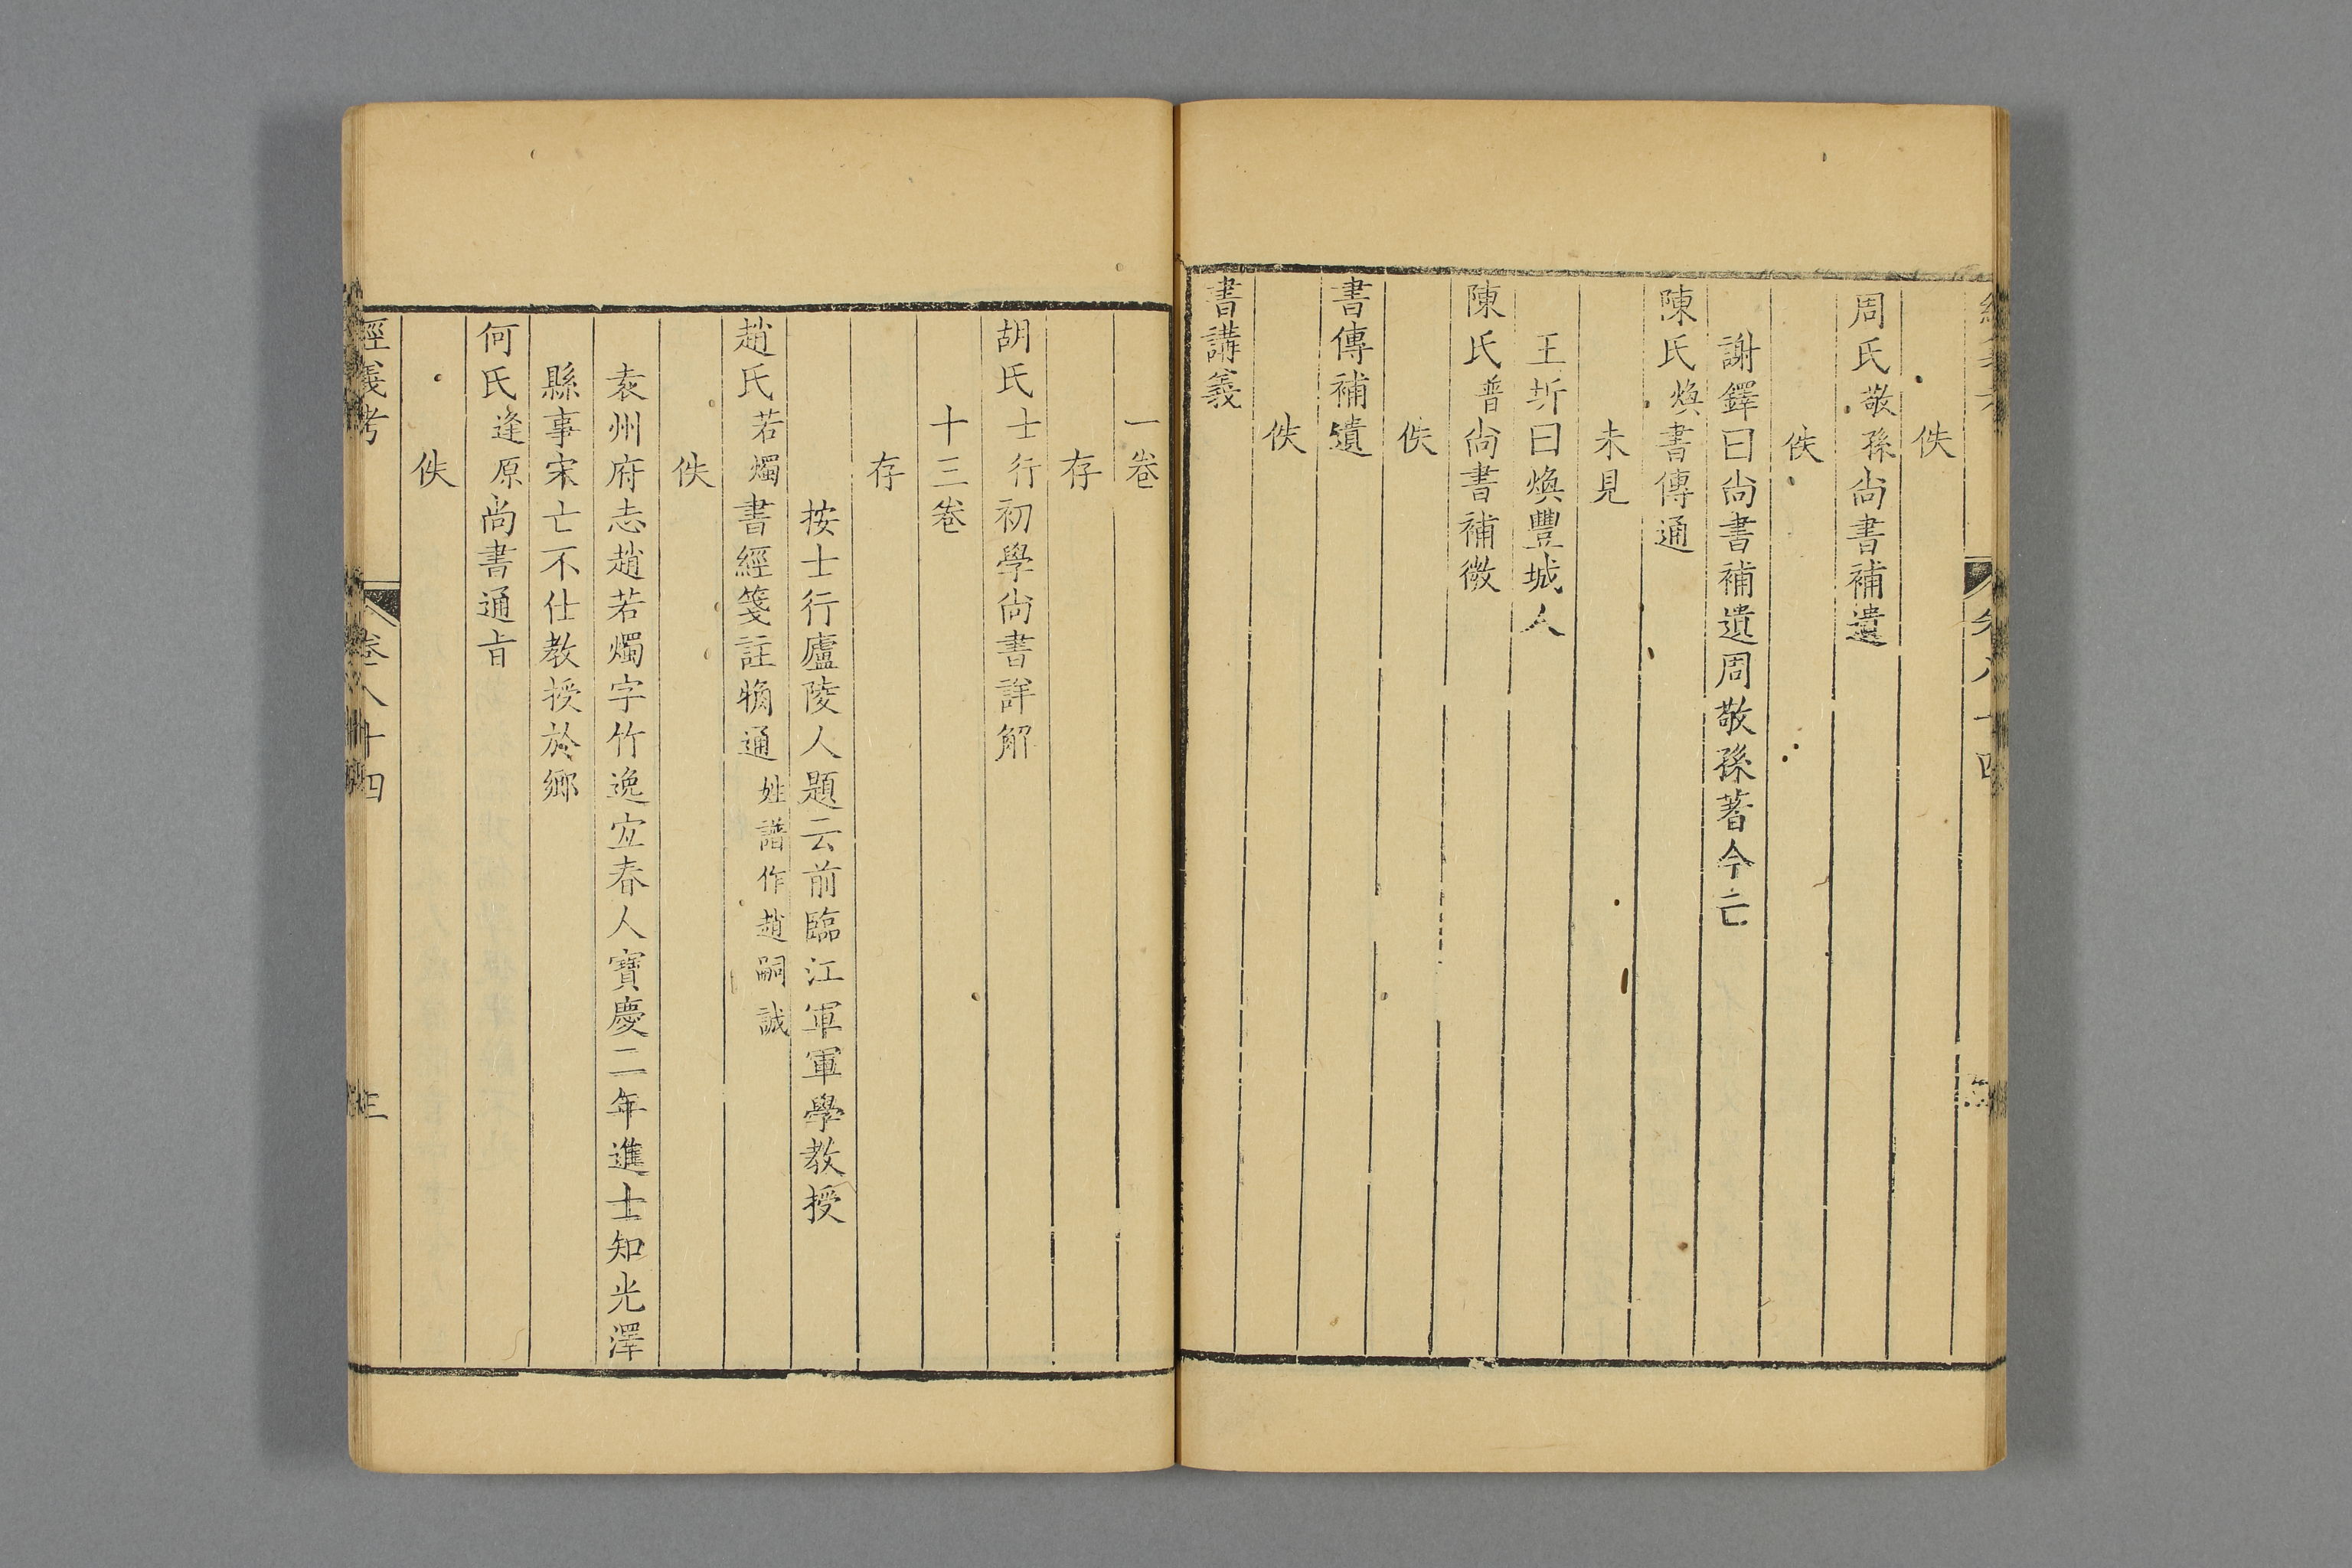 佚
周氏敬孫尚書補遺
佚
謝鐸曰尚書補遺周敬孫著今亡
陳氏煥書傳通
未見
王圻曰煥豐城人
陳氏普尚書補微
佚
書傳補遺
佚
書講義
一卷
存
胡氏士行初學尚書詳解
十三卷
存
按士行廬陵人題云前臨江軍軍學教授
趙氏若燭書經箋註精通姓譜作趙嗣誠
佚
袁州府志趙若燭字竹逸宜春人寶慶二年進士知光澤
縣事宋亡不仕教授於鄉
何氏逢原尚書通旨
佚
經義考 卷八十四